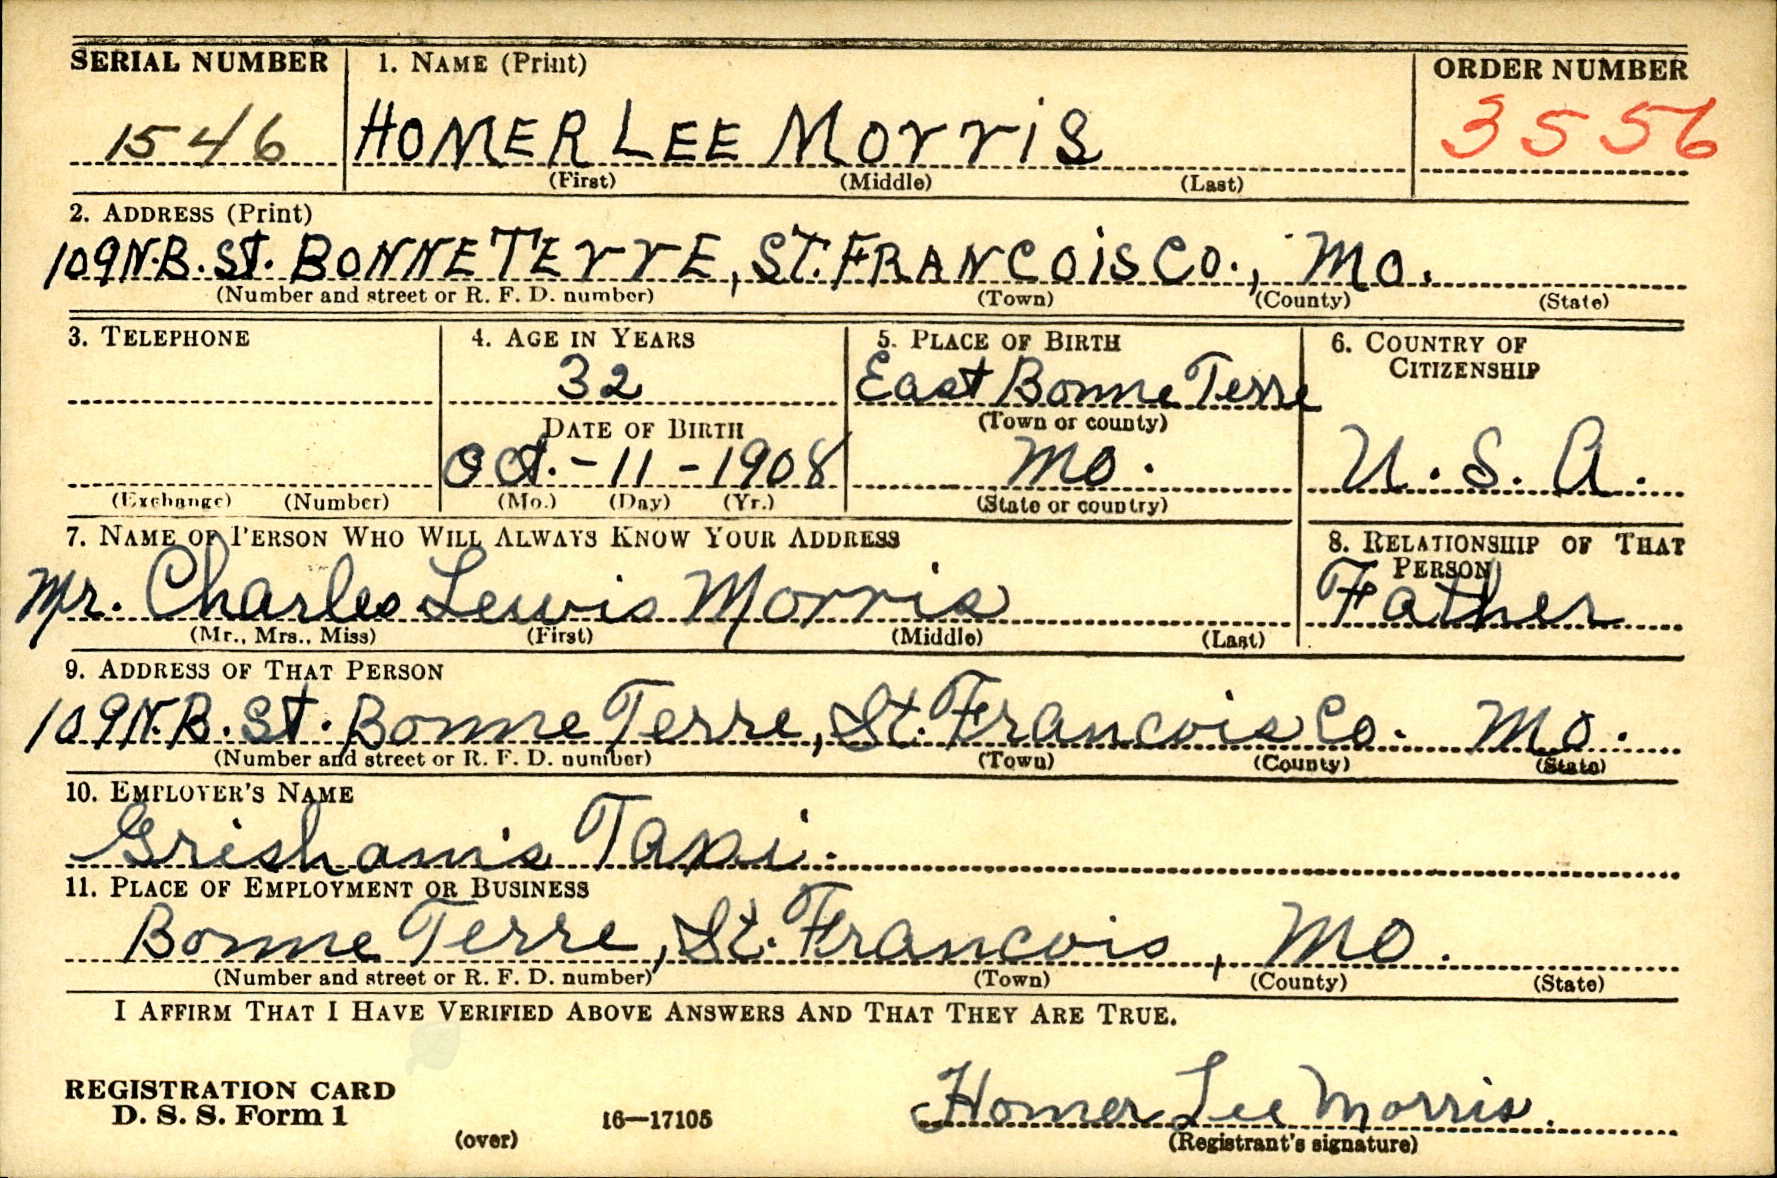 SERIAL NUMBER 1. NAME (Print) ORDER NUMBER
1546 HOMER LEE MORRIS 3556
(First) (Middle) (Last)
2. ADDRESS (Print)
109 N.B. St. BONNE TERRE, ST. FRANCOIS CO., MO.
(Number and street or R. F. D. number) (Town) (County) (State)
3. TELEPHONE 4. AGE IN YEARS 5. PLACE OF BIRTH 6. COUNTRY OF CITIZENSHIP
32 East Bonne Terre
DATE OF BIRTH (Town or county)
Oct. - 11 - 1908 Mo. U. S. A.
(Exchange) (Number) (Mo.) (Day) (Yr.) (State or country)
7. NAME OF PERSON WHO WILL ALWAYS KNOW YOUR ADDRESS 8. RELATIONSHIP OF THAT PERSON
Mr. Charles Lewis Morris Father
(Mr., Mrs., Miss) (First) (Middle) (Last)
9. ADDRESS OF THAT PERSON
109 N.B. St. Bonne Terre, St. Francois Co. Mo.
(Number and street or R. F. D. number) (Town) (County) (State)
10. EMPLOYER'S NAME
Grisham's Taxi.
11. PLACE OF EMPLOYMENT OR BUSINESS
Bonne Terre, St. Francois, Mo.
(Number and street or R. F. D. number) (Town) (County) (State)
I AFFIRM THAT I HAVE VERIFIED ABOVE ANSWERS AND THAT THEY ARE TRUE.
REGISTRATION CARD
D. S. S. Form 1 16—17105 Homer Lee Morris.
(over) (Registrant's signature)